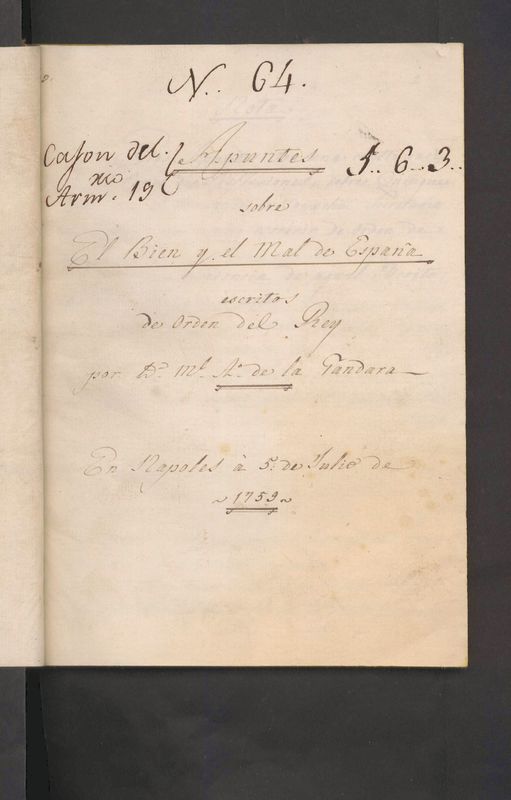 N. 64.
Cajon del.
Arm.º 19
Apuntes
1.. 6.. 3..
sobre
El Bien y el Mal de España
escritos
de Orden del Rey
por Dⁿ. Mˡ. Aº. de la Gandara
En Napoles à 5. de Julio de
~1759~